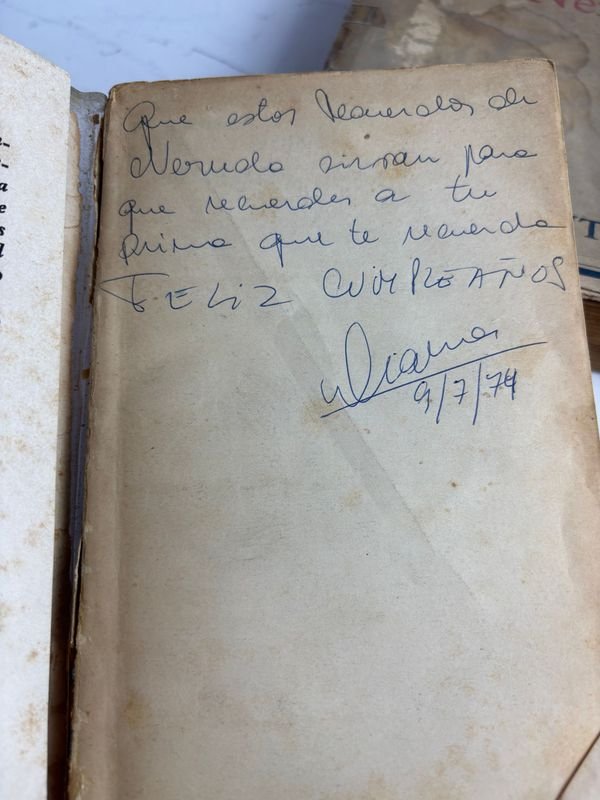 Que estos recuerdos de
Neruda sirvan para
que recuerdes a tu
prima que te recuerda
FELIZ CUMPLEAÑOS
Diana
9/7/74